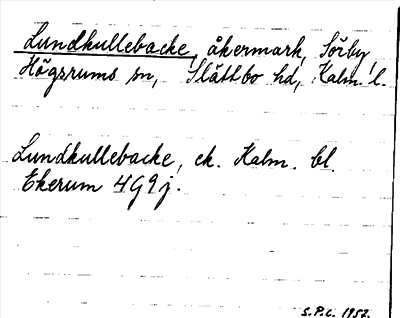 Lundkullebacke, åkermark, Sörby,
Högsrums sn, Slättbo hd, Kalm. l.
Lundkullebacke, ek. Kalm. bl.
Ekerum 4G9j.
S.P.C. 1957.